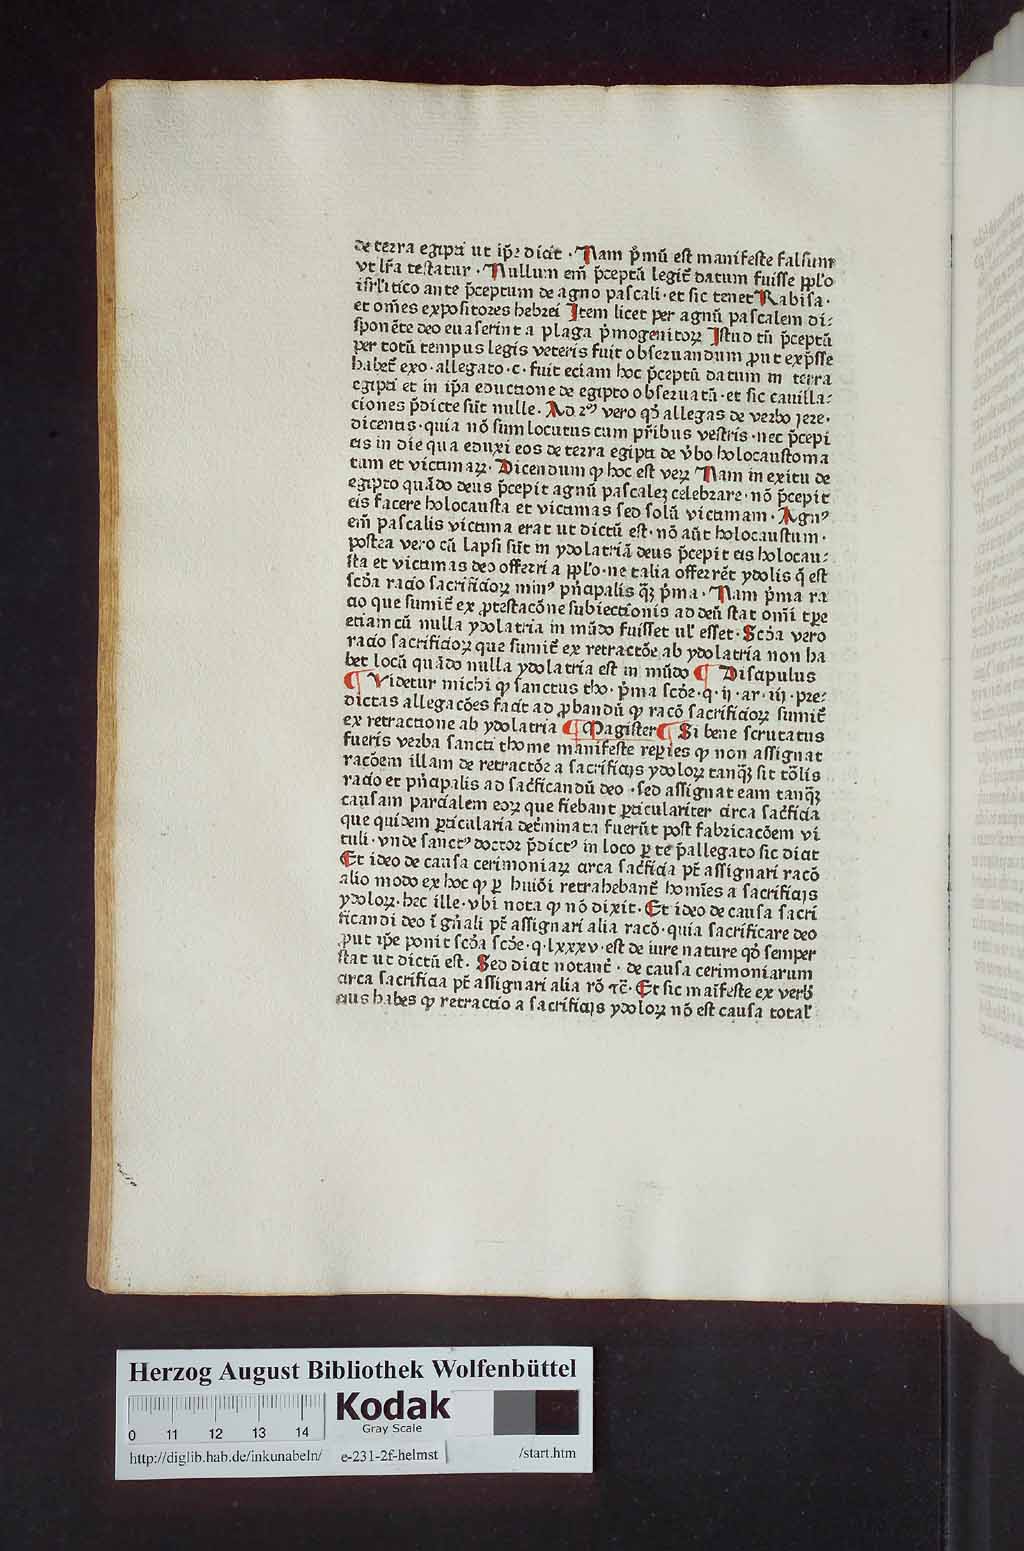 de terra egipti ut ip̄e dicit · Nam p̄mū est manifeste falsum
vt lr̄a testatur · Nullum em̄ p̄ceptū legit̄ datum fuisse ppl'o
isrl'itico ante p̄ceptum de agno pascali · et sic tenet Rabisa ·
et om̄es expositores hebrei Item licet per agnū pascalem di⸗
sponēte deo euaserint a plaga p̄mogenitoꝝ Istud tn̄ p̄ceptū
per totū tempus legis veteris fuit obseruandum ꝓut exp̄sse
habet̄ exo · allegato · c · fuit eciam hoc p̄ceptū datum in terra
egipti et in ip̄a eductione de egipto obseruatū · et sic cauilla⸗
ciones p̄dicte sūt nulle · Ad 2ꝰ vero qd̄ allegas de verbo jere ·
dicentis · quia nō sum locutus cum pr̄ibus vestris · nec p̄cepi
eis in die qua eduxi eos de terra egipti de v̄bo holocaustoma
tum et victimaꝝ · Dicendum ꝙ hoc est veꝝ Nam in exitu de
egipto quādo deus p̄cepit agnū pascaleꝫ celebrare · nō p̄cepit
eis facere holocausta et victimas sed solū victimam · Agnꝰ
em̄ pascalis victima erat ut dictū est · nō aūt holocaustum ·
postea vero cū lapsi sūt in ydolatriā deus p̄cepit eis holocau⸗
sta et victimas deo offerri a ppl'o · ne talia offerrēt ydolis q̄ est
scd̄a racio sacrificioꝝ minꝰ pn̄cipalis q̄ꝫ p̄ma · Nam p̄ma ra
cio que sumit̄ ex ꝓtestacōne subiectionis ad deū stat om̄i tꝑe
etiam cū nulla ydolatria in mūdo fuisset ul' esset · Scd̄a vero
racio sacrificioꝝ que sumit̄ ex retractōe ab ydolatria non ha
bet locū quādo nulla ydolatria est in mūdo ¶ Discipulus
¶ Videtur michi ꝙ sanctus tho · p̄ma scd̄e · q · ij · ar · iij · pre⸗
dictas allegacōes facit ad ꝓbandū ꝙ racō sacrificioꝝ sumit̄
ex retractione ab ydolatria ¶ Magister ¶ Si bene scrutatus
fueris verba sancti thome manifeste reꝑies ꝙ non assignat
racōem illam de retractōe a sacrificijs ydoloꝝ tanq̄ꝫ sit tōlis
racio et pn̄cipalis ad sac̄ficandū deo · sed assignat eam tanq̄ꝫ
causam parcialem eoꝝ que fiebant ꝑticulariter circa sac̄ficia
que quidem ꝑticularia det̄minata fuerūt post fabricacōem vi
tuli · vnde sanctꝰ doctor p̄dictꝰ in loco ꝑ te p̄allegato sic dicit
Et ideo de causa cerimoniaꝝ circa sac̄ficia pt̄ assignari racō
alio modo ex hoc ꝙ ꝑ huiōi retrahebant̄ homīes a sacrificijs
ydoloꝝ · hec ille · vbi nota ꝙ nō dixit · Et ideo de causa sacri
ficandi deo ī gn̄ali pt̄ assignari alia racō · quia sacrificare deo
ꝓut ip̄e ponit scd̄a scd̄e · q · lxxxv · est de iure nature qd̄ semper
stat ut dictū est · Sed dicit notant̄ · de causa cerimoniarum
circa sacrificia pt̄ assignari alia rō ⁊c̄ · Et sic maīfeste ex verb̄
eius habes ꝙ retractio a sacrificijs ydoloꝝ nō est causa total'
Herzog August Bibliothek Wolfenbüttel
0 11 12 13 14
Kodak
Gray Scale
http://diglib.hab.de/inkunabeln/ e-231-2f-helmst /start.htm